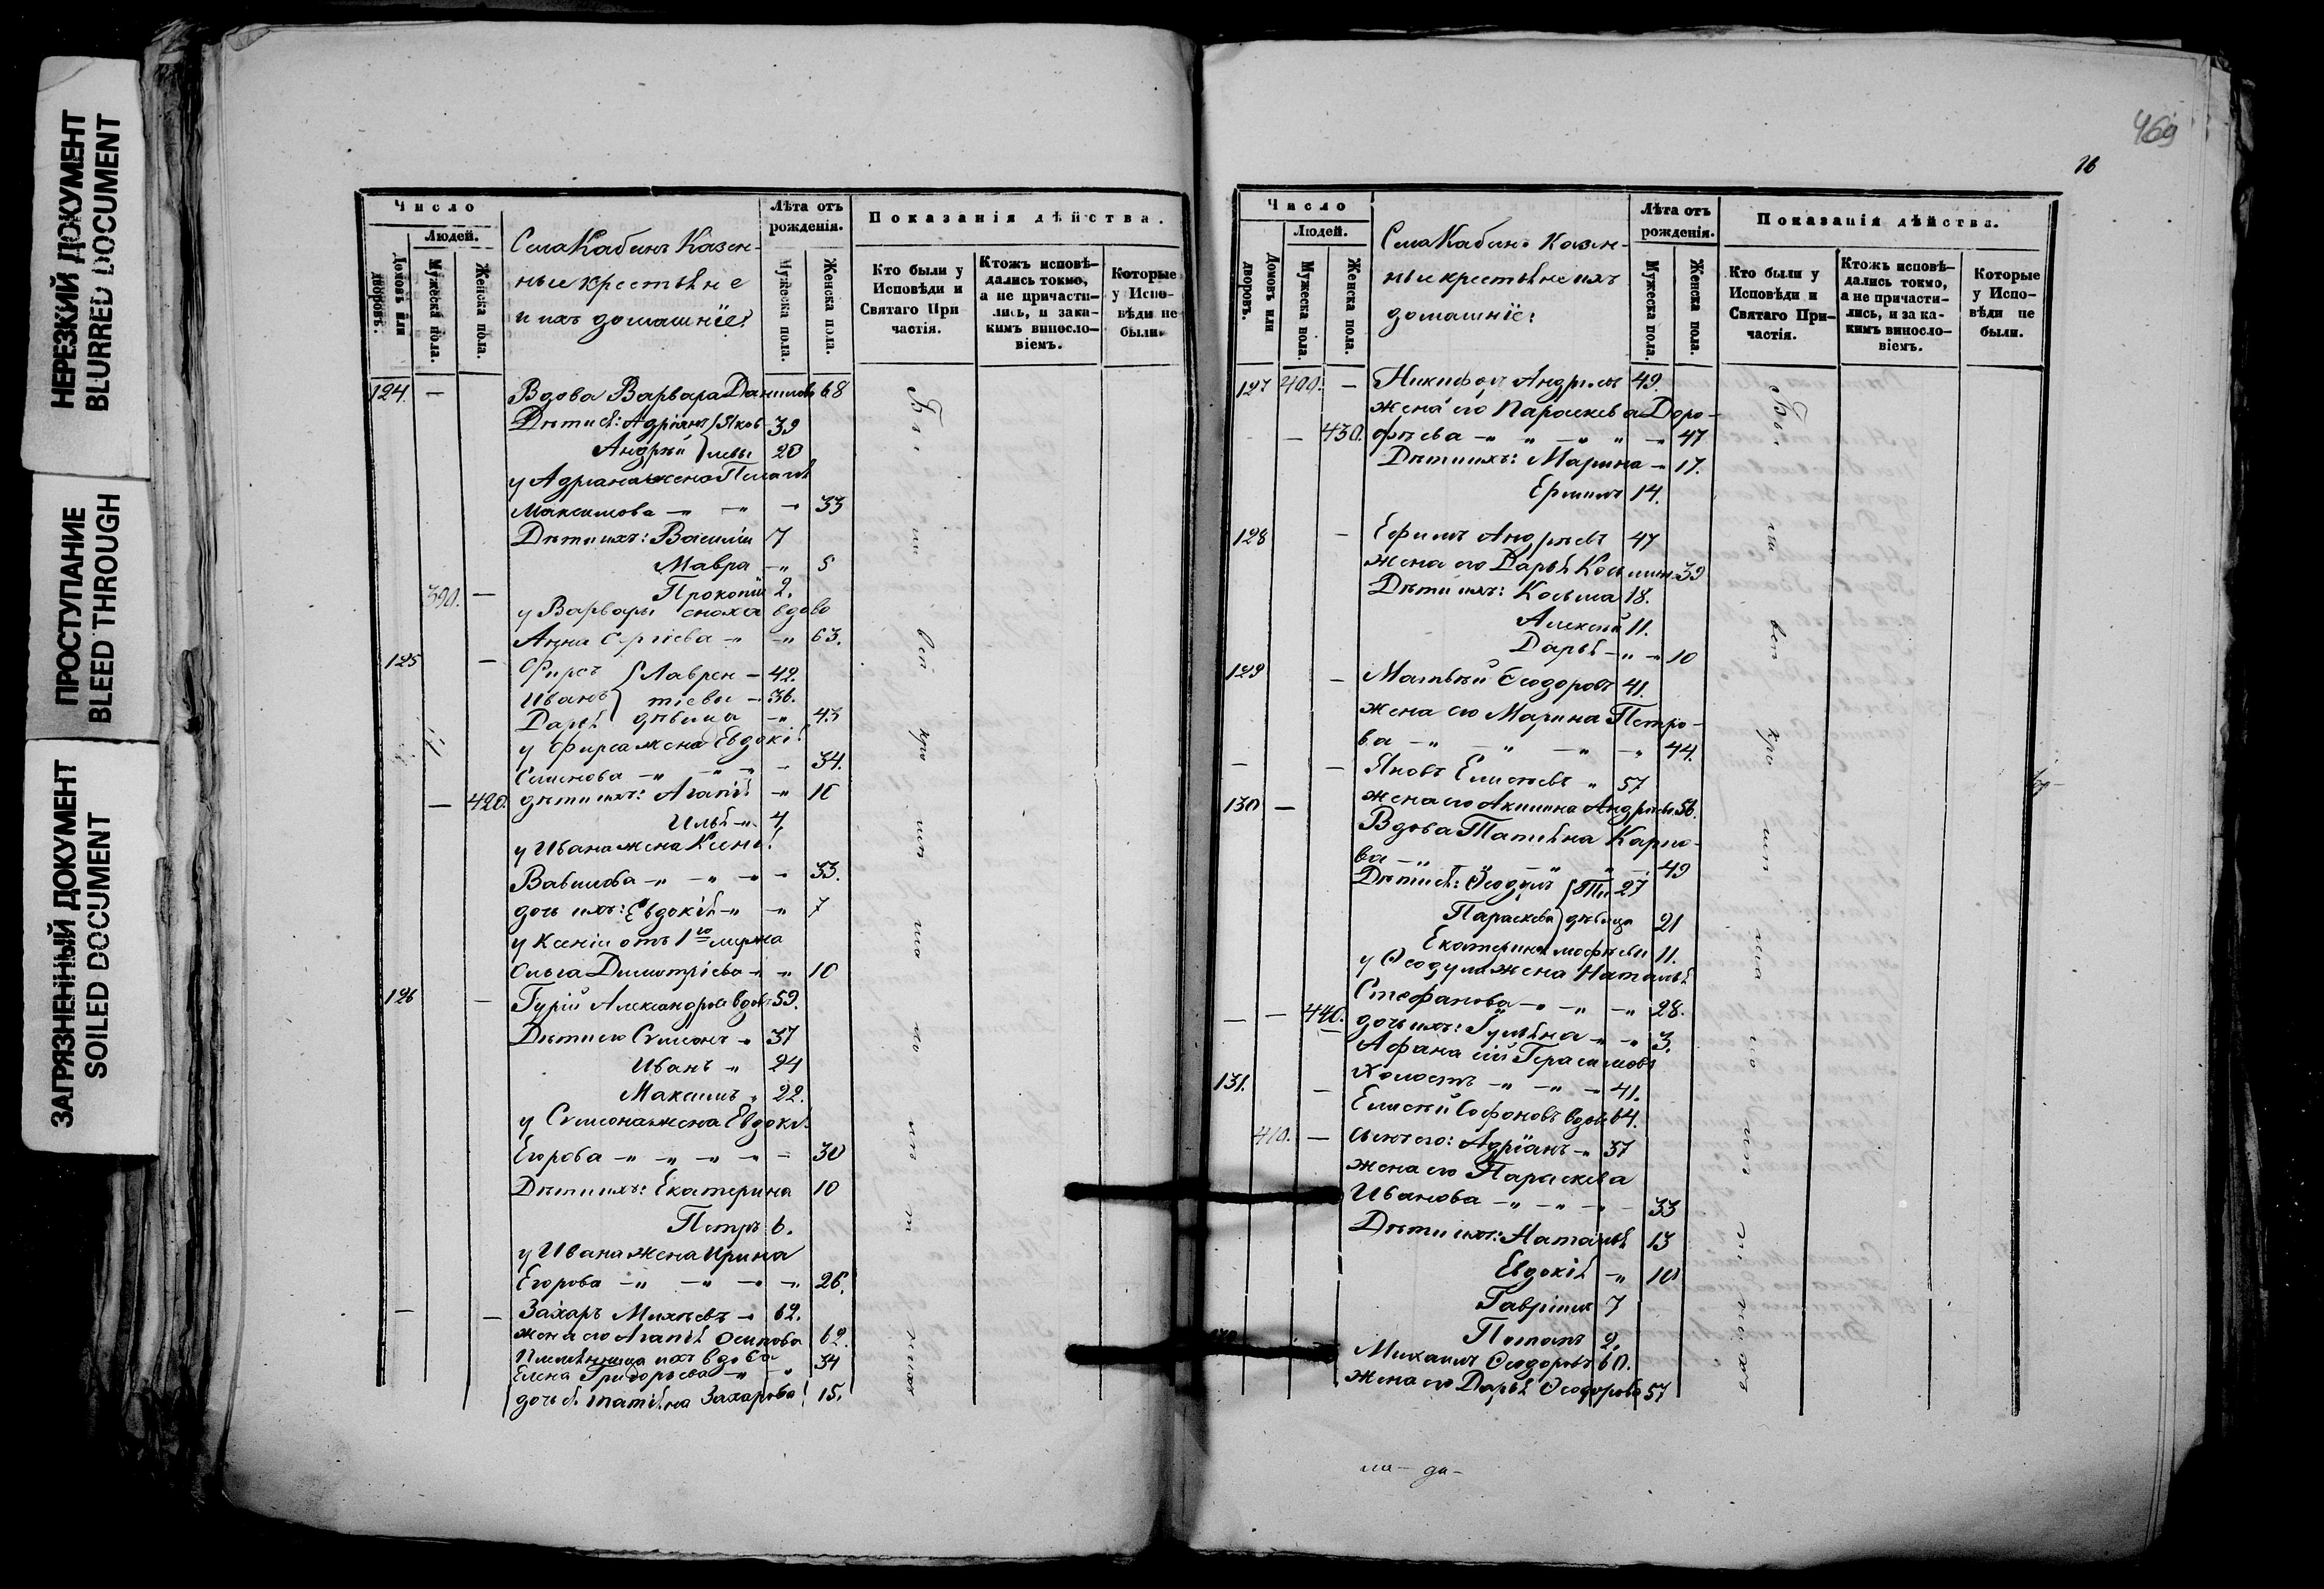 НЕРЕЗКИЙ ДОКУМЕНТ
BLURRED DOCUMENT
ПРОСТУПАНИЕ
BLEED THROUGH
ЗАГРЯЗНЕННЫЙ ДОКУМЕНТ
SOILED DOCUMENT
Число
Людей.
Домовъ или дворовъ.
Мужеска пола.
Женска пола.
Села Кабанъ Казен-
ные крестьяне
и ихъ домашніе:
Лѣта отъ рожденія.
Мужеска пола.
Женска пола.
Показанія дѣйства.
Кто были у Исповѣди и Святаго Причастія.
Ктожъ исповѣ-
дались токмо,
а не причасти-
лись, и зака-
кимъ винос­ло-
віемъ.
Которые
у Испо-
вѣди не
были.
124. — Вдова Варвара Данилова 68
Дѣти ея: Адріанъ Яков- 39
Андрей левы 20
у Адріана жена Пелагея
Максимова 33
Дѣти ихъ: Василій 7
Мавра 5
390. — Прокопій 2.
у Варвары сноха вдова
Анна Сергіева 63.
125 — Фирсъ Лаврен- 42.
Иванъ тіевы 36.
Дарья дѣвица 43
у Фирса жена Евдокія
Семенова 34.
— 420. дѣти ихъ: Агапія 10
Илья 4.
у Ивана жена Ксенія
Вавилова 33.
дочь ихъ: Евдокія 7
у Ксеніи отъ 1го мужа
Ольга Димитріева 10
126 — Гурій Александровъ вдовъ 59.
Дѣти его Симеонъ 37
Иванъ 24
Максимъ 22.
у Симеона жена Евдокія
Егорова 30
Дѣти ихъ: Екатерина 10
Петръ 6.
у Ивана жена Ирина
Егорова 26.
— — Захаръ Михѣевъ 62.
жена его Агапія Осипова 62.
Племянница ихъ вдова
Елена Григорьева 34
дочь ея Татіяна Захарова 15.
469
16
Число
Людей.
Домовъ или дворовъ.
Мужеска пола.
Женска пола.
Села Кабанъ Казен-
ные крестьяне ихъ
домашніе:
Лѣта отъ рожденія.
Мужеска пола.
Женска пола.
Показанія дѣйства.
Кто были у
Исповѣди и
Святаго При-
частія.
Ктожъ исповѣ-
дались токмо,
а не причасти-
лись, и за ка-
кимъ винос­ло-
віемъ.
Которые
у Испо-
вѣди не
были.
127 400. — Никифоръ Андреевъ 49.
жена его Параскева Доро-
— 430. фѣева 47
Дѣти ихъ: Марина 17.
Ермилъ 14.
128 — Ефимъ Андреевъ 47
жена его Дарья Косьмина 39
Дѣти ихъ: Косьма 18.
Алексей 11.
Дарья 10
129 — Матвѣй Ѳеодоровъ 41.
жена его Марина Петро-
ва 44.
— — Яковъ Елисѣевъ 57
жена его Акилина Андреева 56.
130 — Вдова Татіяна Карпо-
ва 49
Дѣти ея: Ѳеодулъ Ти- 27
Параскева дѣвица 21
Екатерина мофѣевы 11.
у Ѳеодула жена Наталья
Стефанова 28.
— — 440. дочь ихъ: Гульяна 3.
— Афанасій Герасимовъ
холостъ 41.
131. — Елисей Софоновъ вдовъ 64.
410. — сынъ его: Адріанъ 37
жена его Параскева
Иванова 33
Дѣти ихъ: Наталья 13
Евдокія 10
Гавріилъ 7
Потапъ 2.
Михаилъ Ѳеодоровъ 60.
жена его Дарья Ѳеодорова 57